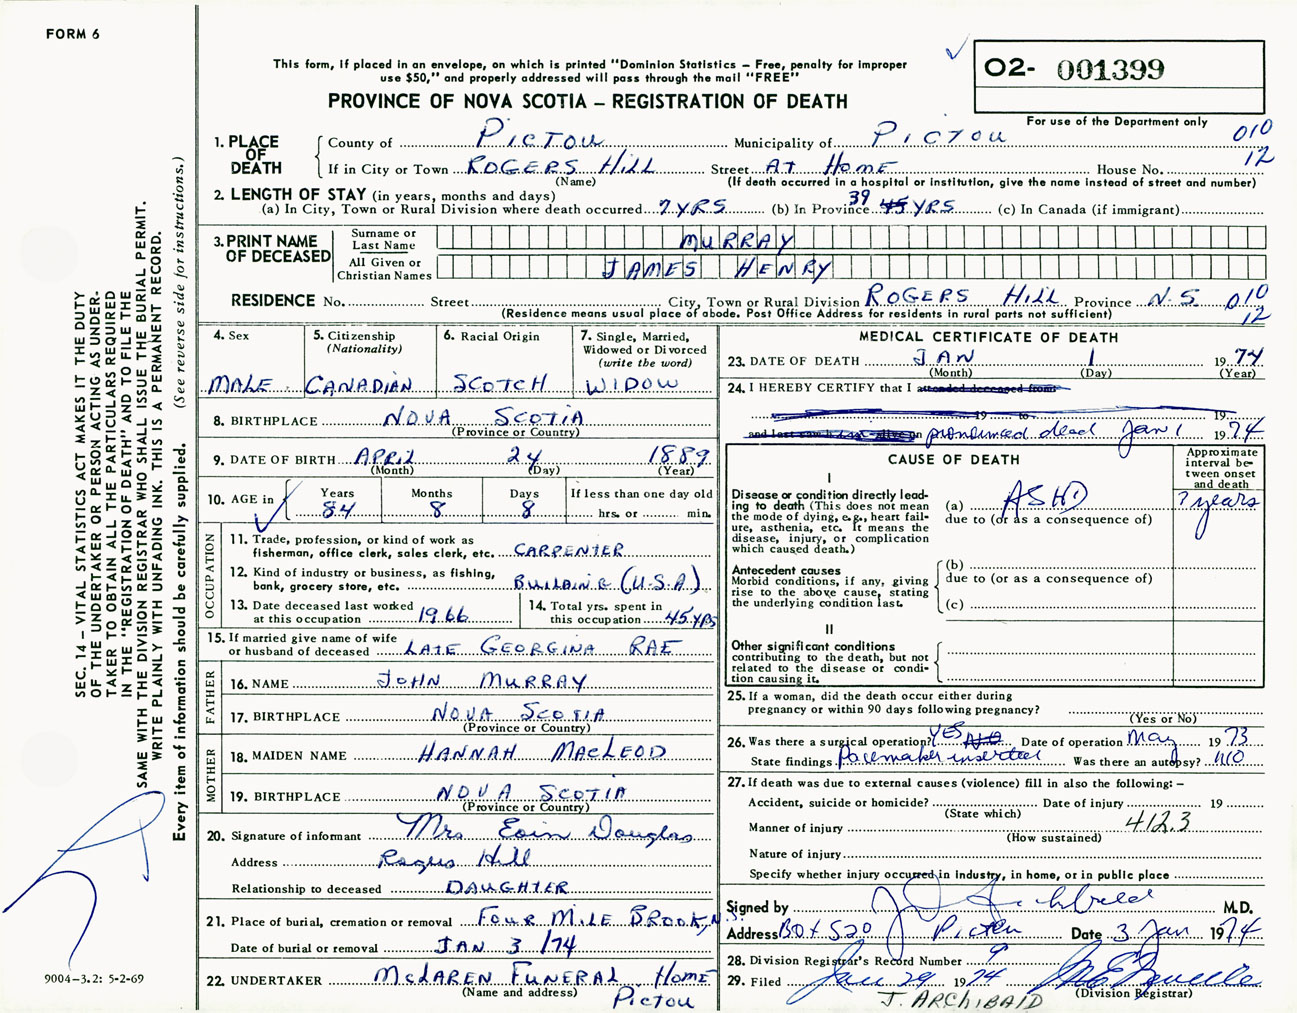 FORM 6
This form, if placed in an envelope, on which is printed "Dominion Statistics – Free, penalty for improper
use $50," and properly addressed will pass through the mail "FREE"
PROVINCE OF NOVA SCOTIA – REGISTRATION OF DEATH
O2- 001399
For use of the Department only
1. PLACE OF DEATH
County of PICTOU Municipality of PICTOU 010
If in City or Town ROGERS HILL Street AT HOME House No. 12
(Name) (If death occurred in a hospital or institution, give the name instead of street and number)
2. LENGTH OF STAY (in years, months and days)
(a) In City, Town or Rural Division where death occurred 7 YRS (b) In Province 39 45 YRS (c) In Canada (if immigrant)
3. PRINT NAME OF DECEASED
Surname or Last Name MURRAY
All Given or Christian Names JAMES HENRY
RESIDENCE No. Street City, Town or Rural Division ROGERS HILL Province N.S 010
(Residence means usual place of abode. Post Office Address for residents in rural parts not sufficient) 12
4. Sex
MALE
5. Citizenship
(Nationality)
CANADIAN
6. Racial Origin
SCOTCH
7. Single, Married,
Widowed or Divorced
(write the word)
WIDOW
8. BIRTHPLACE NOVA SCOTIA
(Province or Country)
9. DATE OF BIRTH APRIL 24 1889
(Month) (Day) (Year)
10. AGE in
Years Months Days If less than one day old
84 8 8 hrs. or min.
OCCUPATION
11. Trade, profession, or kind of work as
fisherman, office clerk, sales clerk, etc. CARPENTER
12. Kind of industry or business, as fishing,
bank, grocery store, etc. BUILDING (U.S.A)
13. Date deceased last worked
at this occupation 1966
14. Total yrs. spent in
this occupation 45 YRS
15. If married give name of wife
or husband of deceased LATE GEORGINA RAE
FATHER
16. NAME JOHN MURRAY
17. BIRTHPLACE NOVA SCOTIA
(Province or Country)
MOTHER
18. MAIDEN NAME HANNAH MACLEOD
19. BIRTHPLACE NOVA SCOTIA
(Province or Country)
20. Signature of informant Mrs Eoin Douglas
Address Rogers Hill
Relationship to deceased DAUGHTER
21. Place of burial, cremation or removal FOUR MILE BROOK, N.S.
Date of burial or removal JAN 3 /74
22. UNDERTAKER MCLAREN FUNERAL HOME
(Name and address) PICTOU
MEDICAL CERTIFICATE OF DEATH
23. DATE OF DEATH JAN 1 1974
(Month) (Day) (Year)
24. I HEREBY CERTIFY that I attended deceased from
19 to 19
on pronounced dead Jan 1 1974
CAUSE OF DEATH
Approximate
interval be-
tween onset
and death
I
Disease or condition directly lead-
ing to death (This does not mean
the mode of dying, e.g., heart fail-
ure, asthenia, etc. It means the
disease, injury, or complication
which caused death.)
(a) ASHD ? years
due to (or as a consequence of)
Antecedent causes
Morbid conditions, if any, giving
rise to the above cause, stating
the underlying condition last.
(b)
due to (or as a consequence of)
(c)
II
Other significant conditions
contributing to the death, but not
related to the disease or condi-
tion causing it.
25. If a woman, did the death occur either during
pregnancy or within 90 days following pregnancy?
(Yes or No)
26. Was there a surgical operation? YES NO Date of operation May 1973
State findings Pacemaker inserted Was there an autopsy? NO
27. If death was due to external causes (violence) fill in also the following: –
Accident, suicide or homicide? Date of injury 19
(State which)
Manner of injury 412.3
(How sustained)
Nature of injury
Specify whether injury occurred in industry, in home, or in public place
Signed by J D Archibald M.D.
Address Box 520 Pictou Date 3 Jan 1974
28. Division Registrar's Record Number 9
29. Filed Jan 29 1974
(Division Registrar)
J. ARCHIBALD
SEC. 14 – VITAL STATISTICS ACT MAKES IT THE DUTY
OF THE UNDERTAKER OR PERSON ACTING AS UNDER-
TAKER TO OBTAIN ALL THE PARTICULARS REQUIRED
IN THE "REGISTRATION OF DEATH" AND TO FILE THE
SAME WITH THE DIVISION REGISTRAR WHO SHALL ISSUE THE BURIAL PERMIT.
WRITE PLAINLY WITH UNFADING INK. THIS IS A PERMANENT RECORD.
Every item of information should be carefully supplied. (See reverse side for instructions.)
9004–3.2: 5-2-69